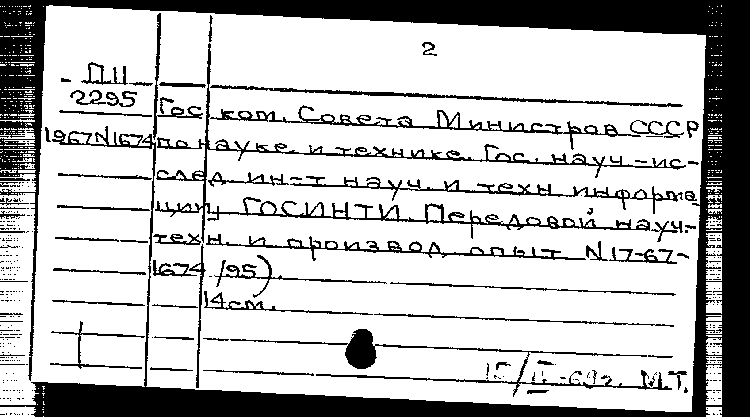 2
П11
2295
Гос ком. Совета Министров СССР
1967N1674 по науке и технике. Гос. науч-ис-
след ин-т науч. и техн информа
ции ГОСИНТИ. Передовой науч-
техн. и производ опыт N17-67-
1674/95).
14см.
15/II-69г. М.Т.